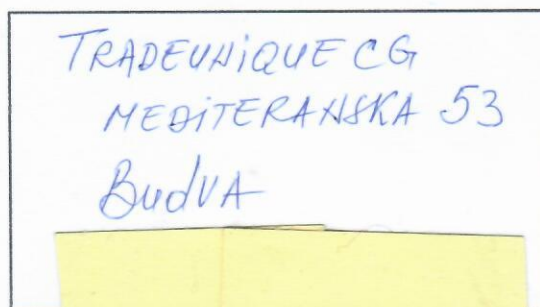 TRADEUNiQUE CG
MEDiTERANSKA 53
BudVA